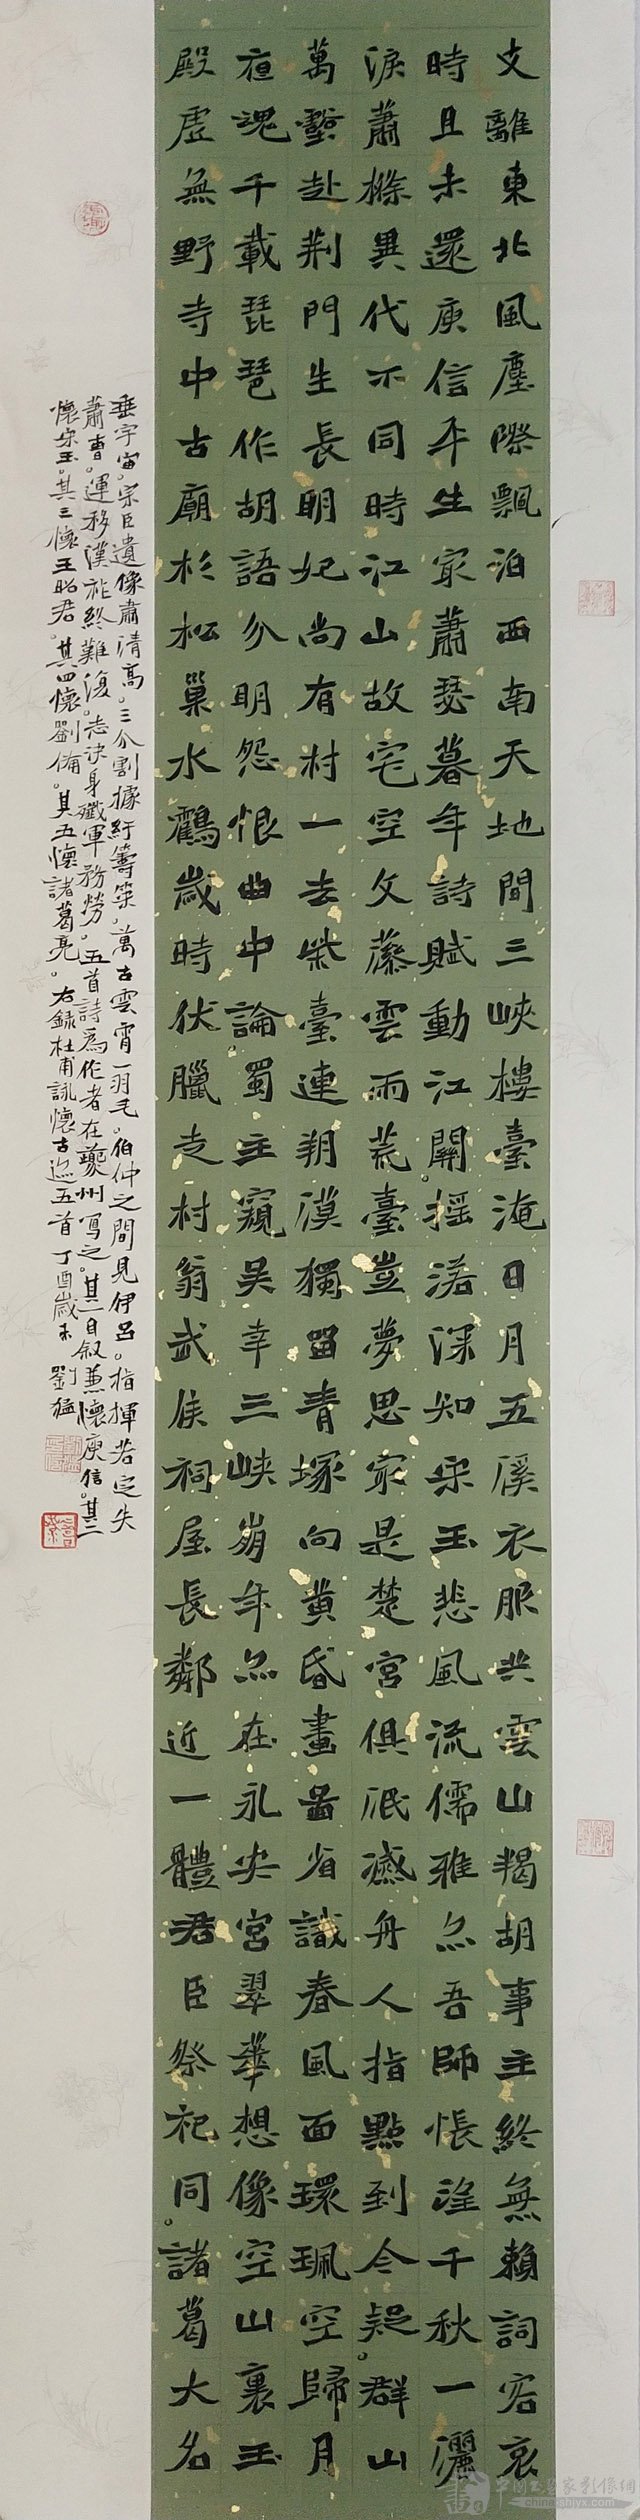 支離東北風塵際飄泊西南天地間三峽樓臺淹日月五溪衣服共雲山羯胡事主終無賴詞客哀
時且未還庾信平生最蕭瑟暮年詩賦動江關。摇落深知宋玉悲風流儒雅亦吾師悵望千秋一灑
淚蕭條異代不同時江山故宅空文藻雲雨荒臺豈夢思最是楚宮俱泯滅舟人指點到今疑。群山
萬壑赴荆門生長明妃尚有村一去紫臺連朔漠獨留青塚向黄昏畫圖省識春風面環珮空歸月
夜魂千載琵琶作胡語分明怨恨曲中論。蜀主窺吴幸三峽崩年亦在永安宮翠華想像空山裏玉
殿虛無野寺中古廟杉松巢水鶴歲時伏臘走村翁武侯祠屋長鄰近一體君臣祭祀同。諸葛大名
垂宇宙。宗臣遺像肅清高。三分割據紆籌策,萬古雲霄一羽毛。伯仲之間見伊呂。指揮若定失
蕭曹。運移漢祚終難復。志決身殲軍務勞。五首詩為作者在夔州寫之。其一自叙兼懷庾信。其二
懷宋玉。其三懷王昭君。其四懷劉備。其五懷諸葛亮。右錄杜甫詠懷古迹五首丁酉歲末劉猛
china-shjyx.com